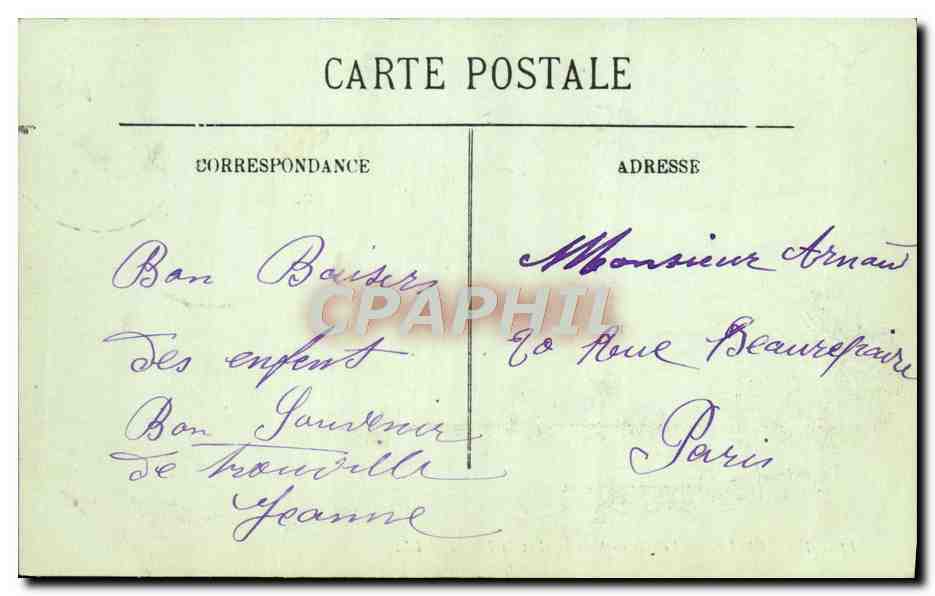 CARTE POSTALE
CORRESPONDANCE
ADRESSE
Bon Baisers
des enfent
Bon Souvenir
de trouville
Jeanne
Monsieur Arnau
20 Rue Beaurepaire
Paris
CPAPHIL